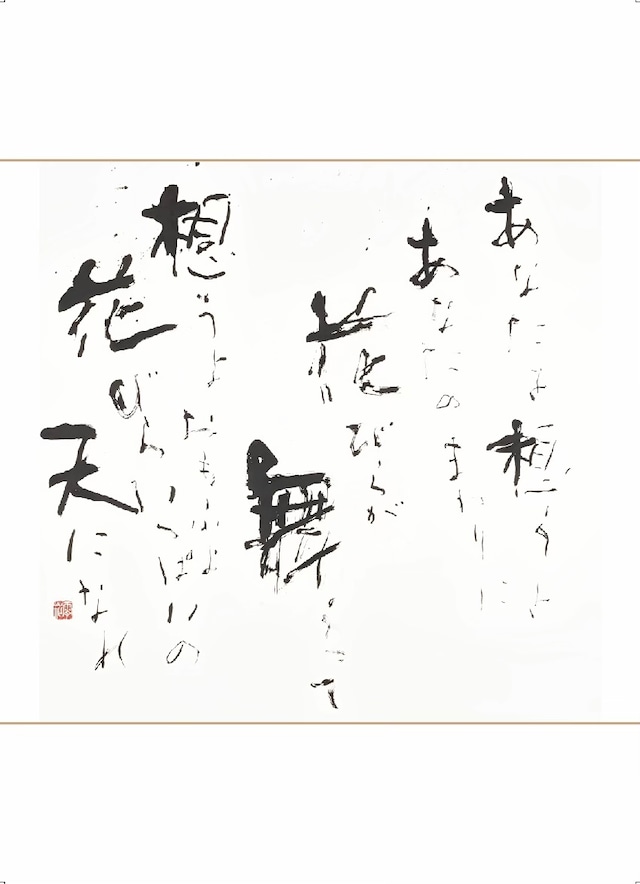 あなたは想うよ
あなたのまわりに
花びらが
舞って
想うよおもふよ
花びらいっぱいの
天になれ